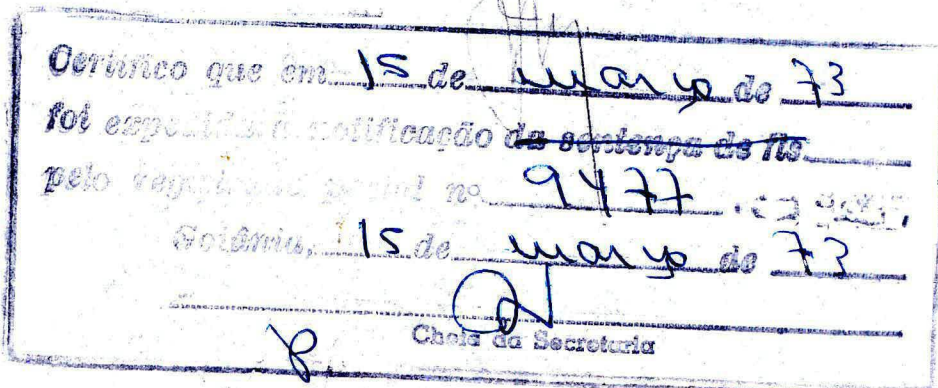 Certifico que em 15 de março de 73
foi expedida a notificação da sentença de fls
pelo registrado postal nº 9477
Goiânia, 15 de março de 73
Chefe da Secretaria